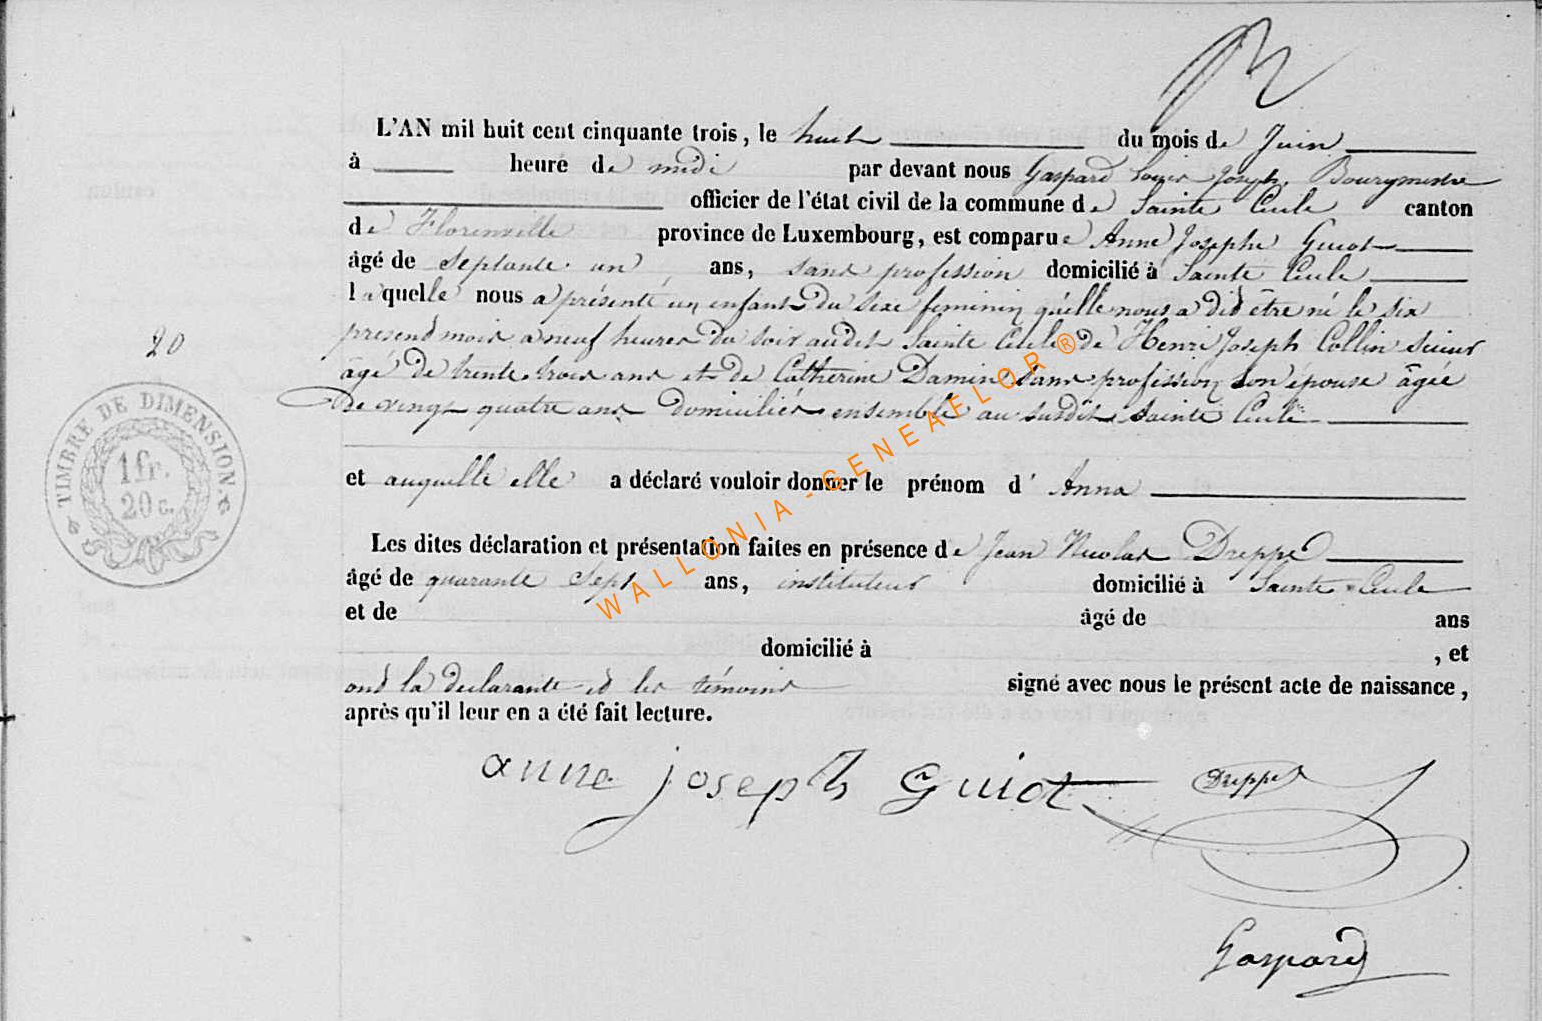 L'AN mil huit cent cinquante trois, le huit du mois de Juin
à heure de midi par devant nous Gaspard Louis Joseph, Bourgmestre
officier de l'état civil de la commune de Sainte Cecile canton
de Florenville province de Luxembourg, est comparue Anne Josephe Guiot
âgé de Septante un ans, sans profession domicilié à Sainte Cecile
laquelle nous a présenté un enfant du sexe feminin qu'elle nous a dit être né le six
present mois a neuf heures du soir audit Sainte Cecile de Henri Joseph Collin scieur
âgé de trente trois ans et de Catherine Damin sans profession son épouse âgée
de vingt quatre ans domiciliés ensemble au susdit Sainte Cecile
20
TIMBRE DE DIMENSION.
1 fr.
20 c.
et auquelle elle a déclaré vouloir donner le prénom d' Anna
Les dites déclaration et présentation faites en présence de Jean Nicolas Dreppe
âgé de quarante Sept ans, instituteur domicilié à Sainte Cecile
et de âgé de ans
domicilié à , et
ont la declarante et les témoins signé avec nous le présent acte de naissance,
après qu'il leur en a été fait lecture.
anne joseph Guiot Dreppe
Gaspard
WALLONIA-GENEAFLOR®